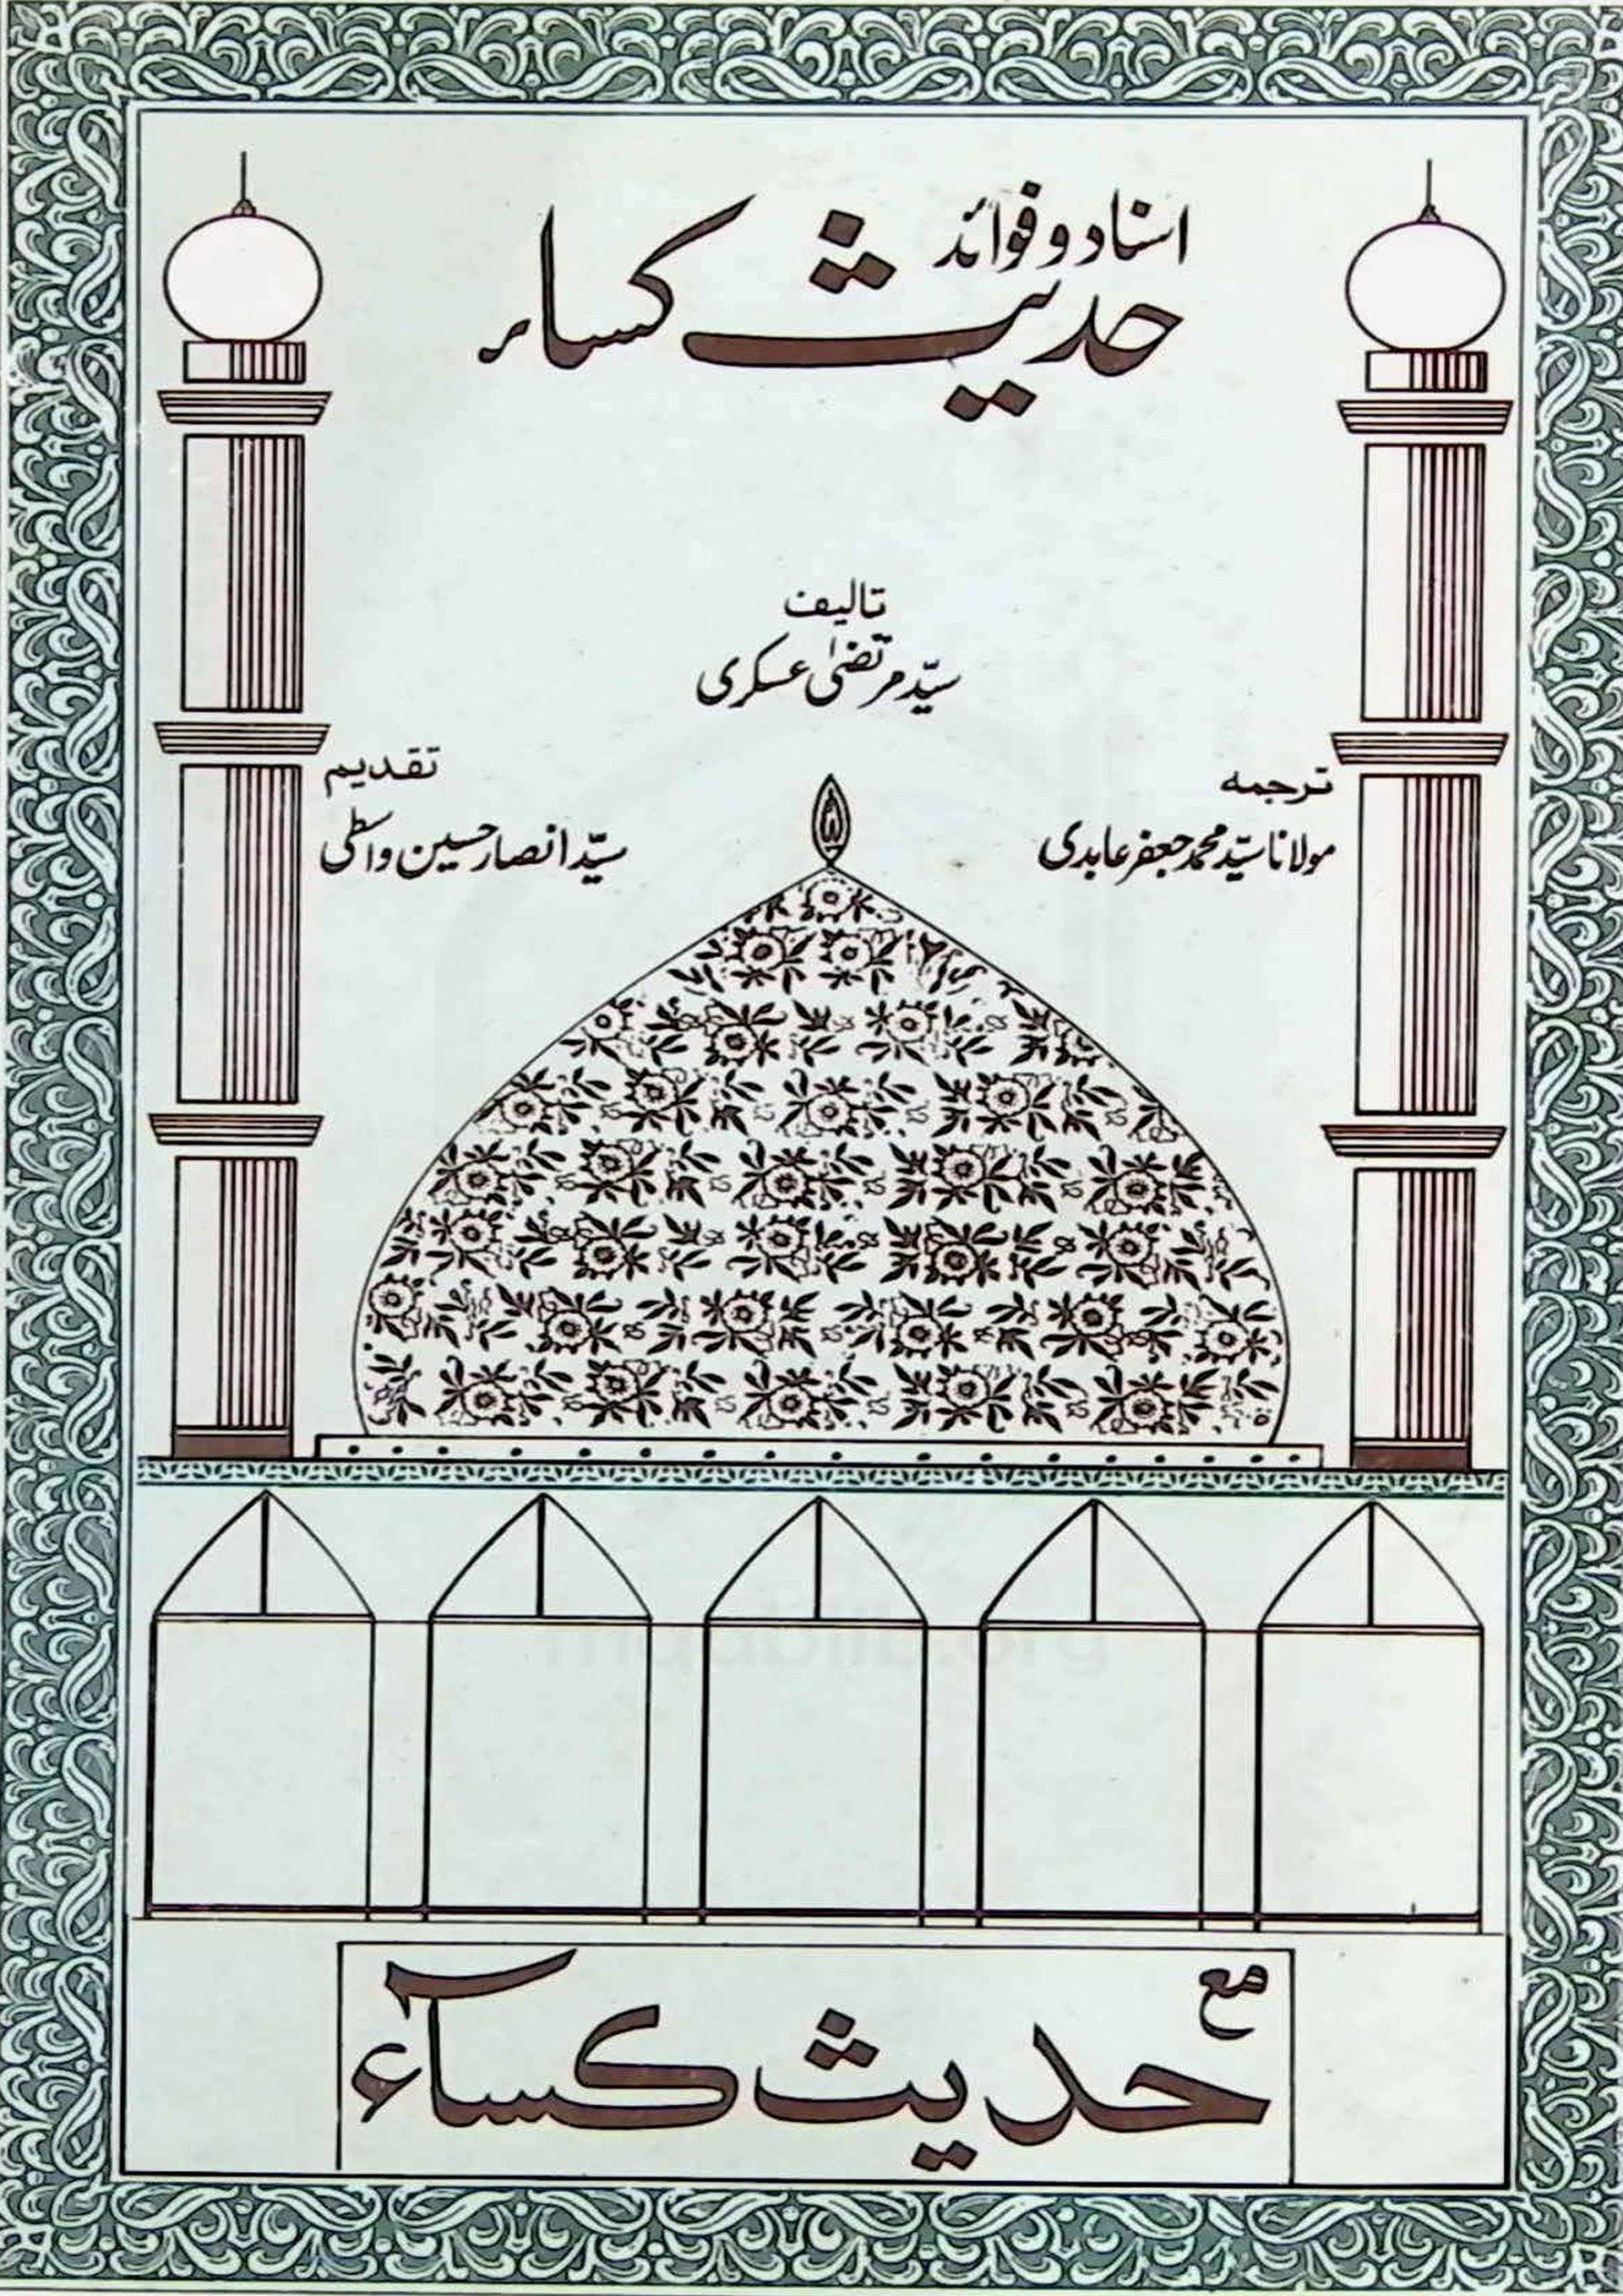 اسناد و فوائد
حدیث کساء
تالیف
سیّد مرتضیٰ عسکری
ترجمه
مولانا سیّد محمد جعفر عابدی
تقدیم
سیّد انصار حسین واسطی
مع
حدیث کسآء